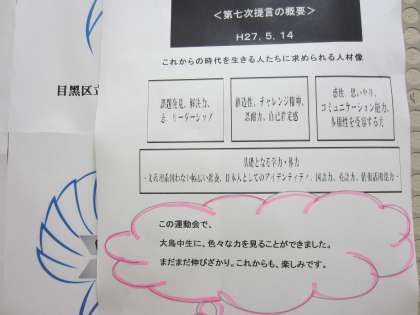 <第七次提言の概要>
H27.5.14
これからの時代を生きる人たちに求められる人材像
目黒区立
課題発見、解決力、
志、リーダーシップ
創造性、チャレンジ精神、
忍耐力、自己肯定感
感性、思いやり、
コミュニケーション能力、
多様性を受容する力
基礎となる学力・体力
-文系理系問わない幅広い教養、日本人としてのアイデンティティ、国語力、英語力、情報活用能力-
この運動会で、
大鳥中生に、色々な力を見ることができました。
まだまだ伸びざかり。これからも、楽しみです。